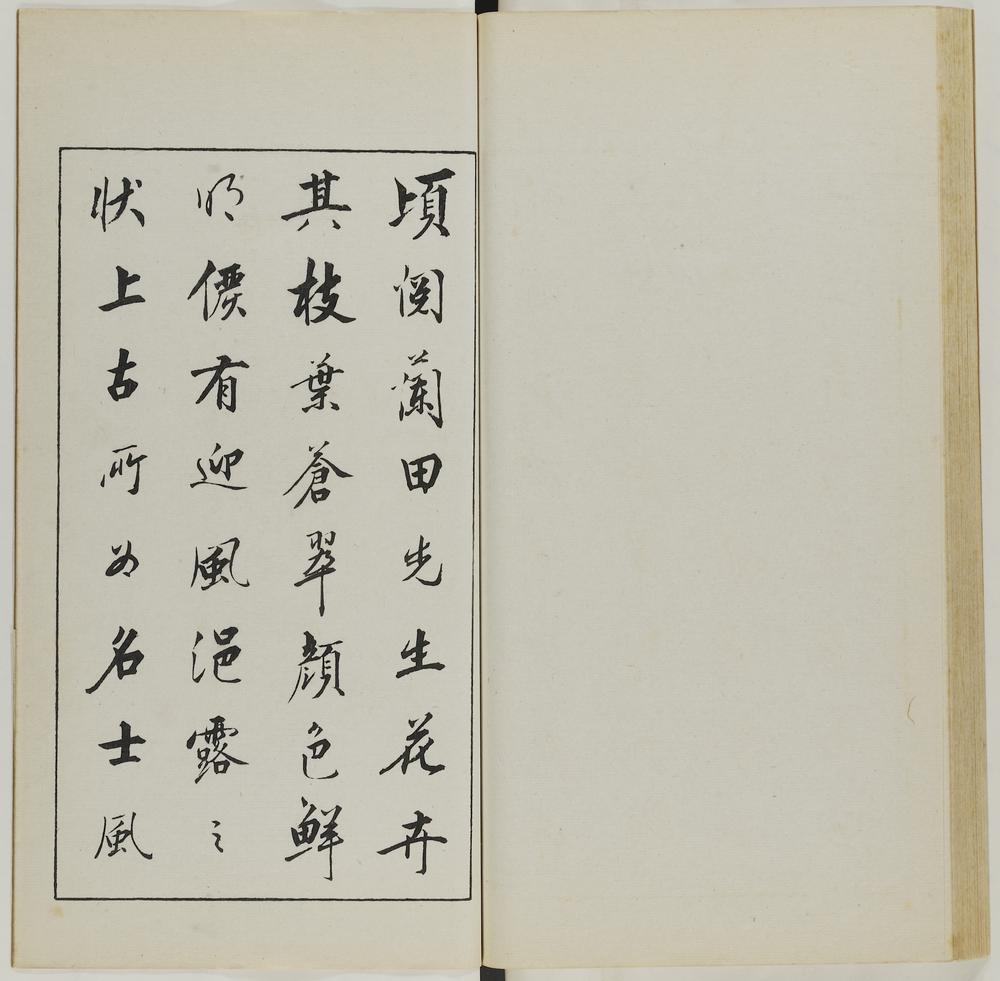 頃閲蘭田先生花卉
其枝葉蒼翠顔色鮮
明有迎風浥露之
状上古所为名士風